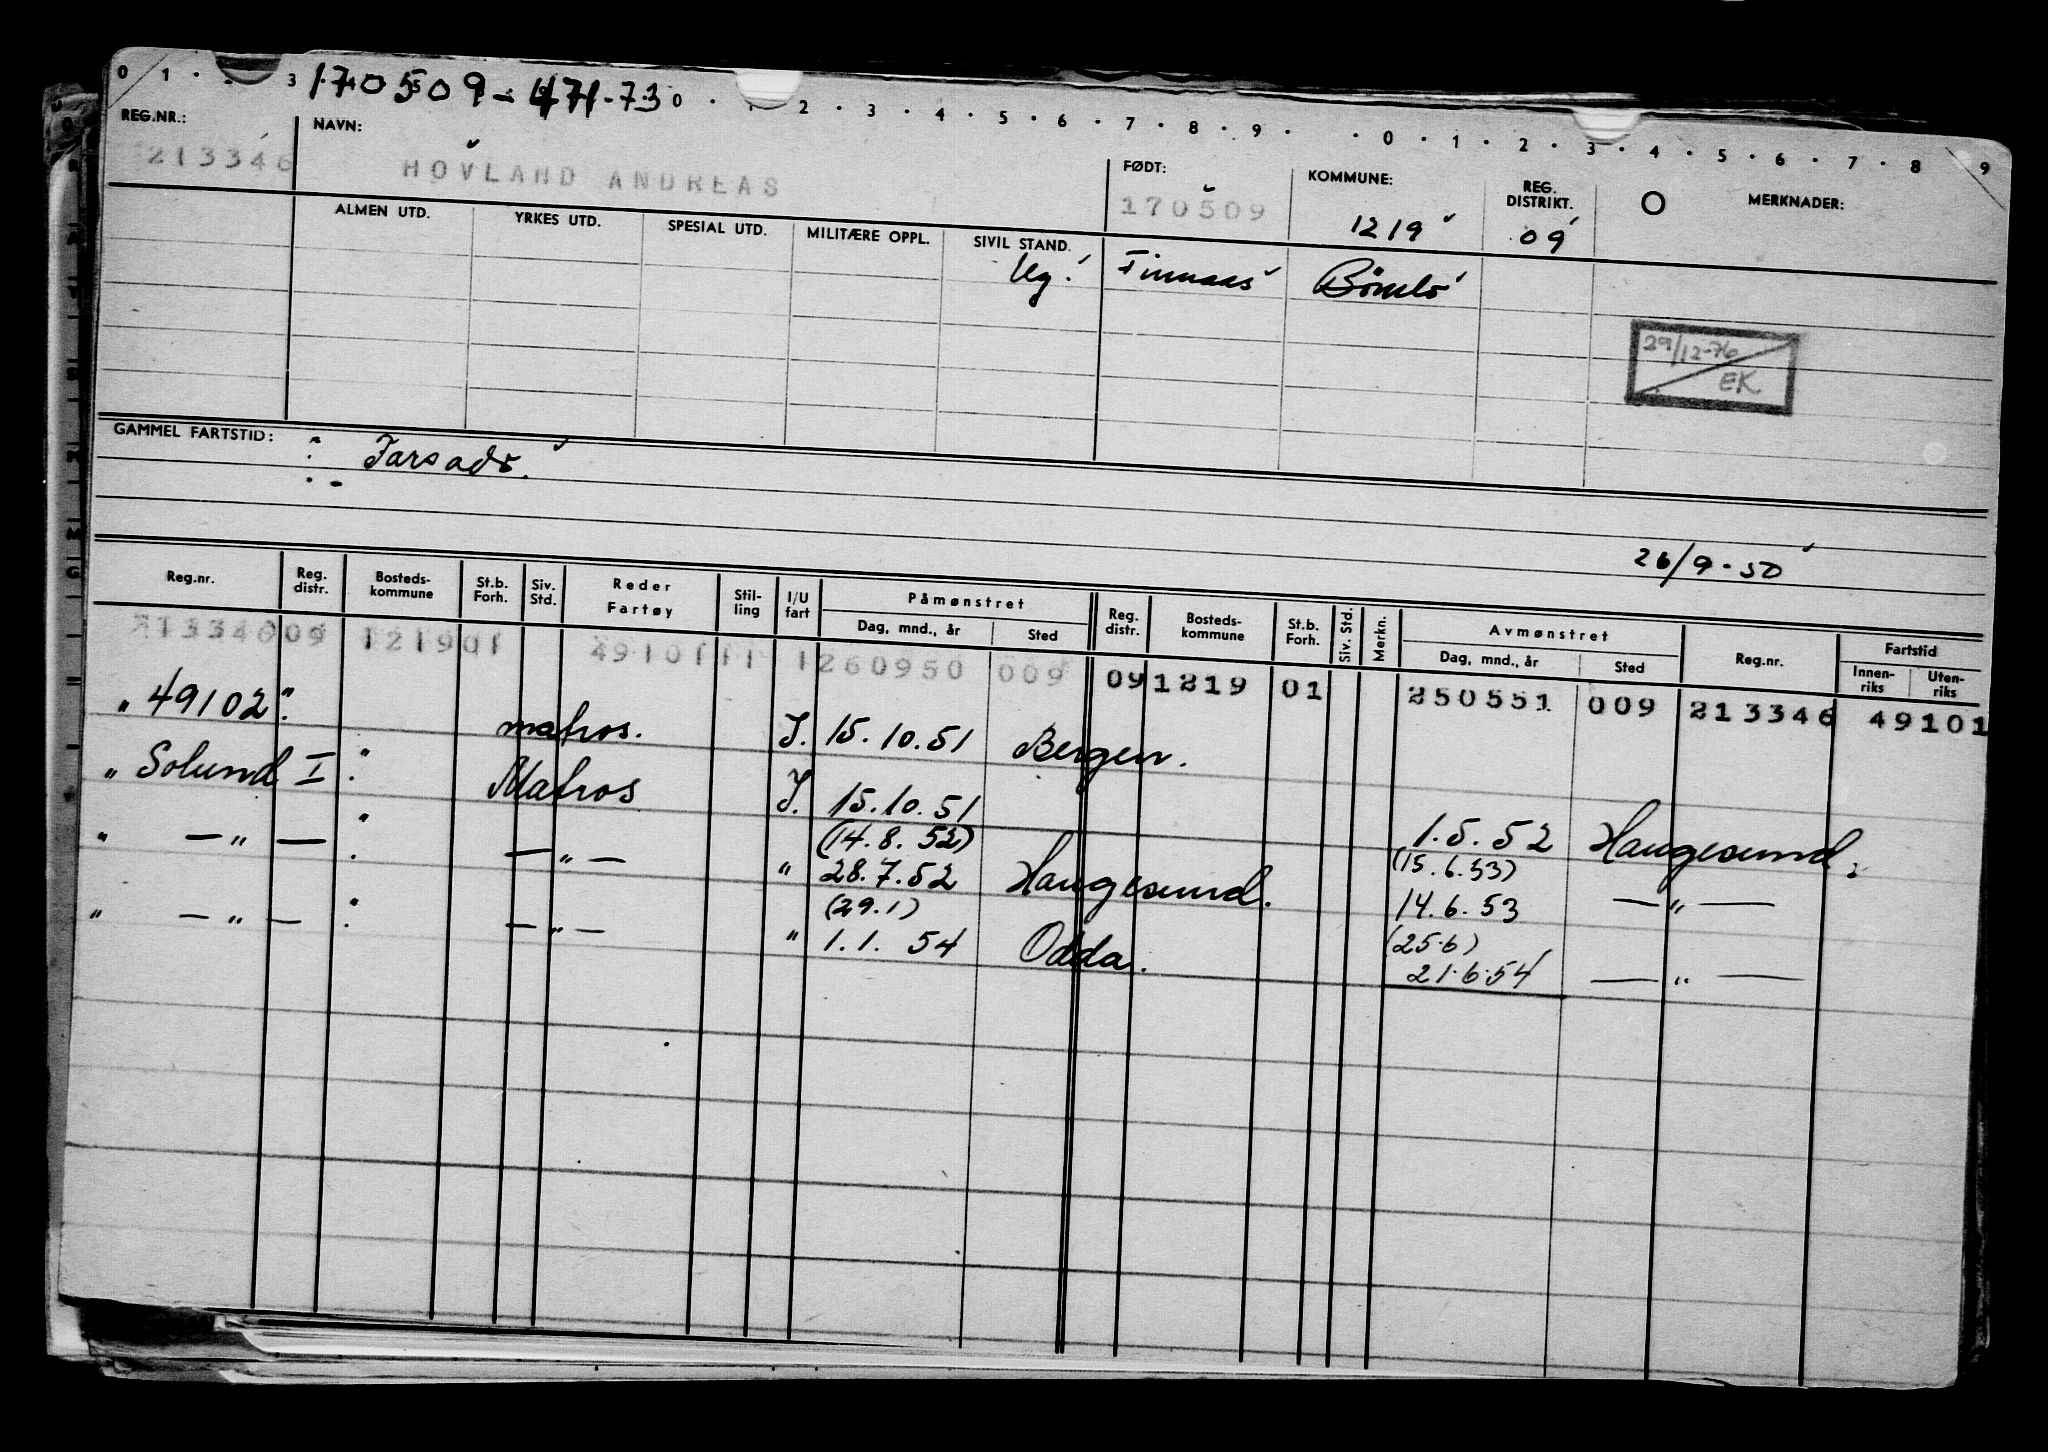 0 1 · · 3 170509-471-73 0 · 1 · 2 · 3 · 4 · 5 · 6 · 7 · 8 · 9 · · 0 · 1 · 2 · 3 · 4 · 5 · 6 · 7 · 8 9
REG.NR.: NAVN: FØDT: KOMMUNE: REG. DISTRIKT. MERKNADER:
213346 HOVLAND ANDREAS 170509 1219 09
ALMEN UTD. YRKES UTD. SPESIAL UTD. MILITÆRE OPPL. SIVIL STAND.
Ug. Finnaas Bömlo
29/12-76
EK
GAMMEL FARTSTID:
26/9-50
Reg.nr. Reg. distr. Bosteds- kommune St.b. Forh. Siv. Std. Reder Fartøy Stil- ling I/U fart Påmønstret Dag, mnd., år Sted Reg. distr. Bosteds- kommune St.b. Forh. Siv. Std. Merkn. Avmønstret Dag, mnd., år Sted Reg.nr. Fartstid Innen- riks Uten- riks
213346 09 1219 01 49101 11 1 260950 009 09 1219 01 250551 009 213346 49101
„ 49102" matros. I. 15.10.51 Bergen.
„ Solund I " Matros I. 15.10.51 1.5.52 Haugesund.
(14.8.52) (15.6.53)
" — " — " — „ — " 28.7.52 Haugesund. 14.6.53 — „ —
(29.1) (25.6)
" — " — " — „ — " 1.1.54 Odda. 21.6.54 — „ —